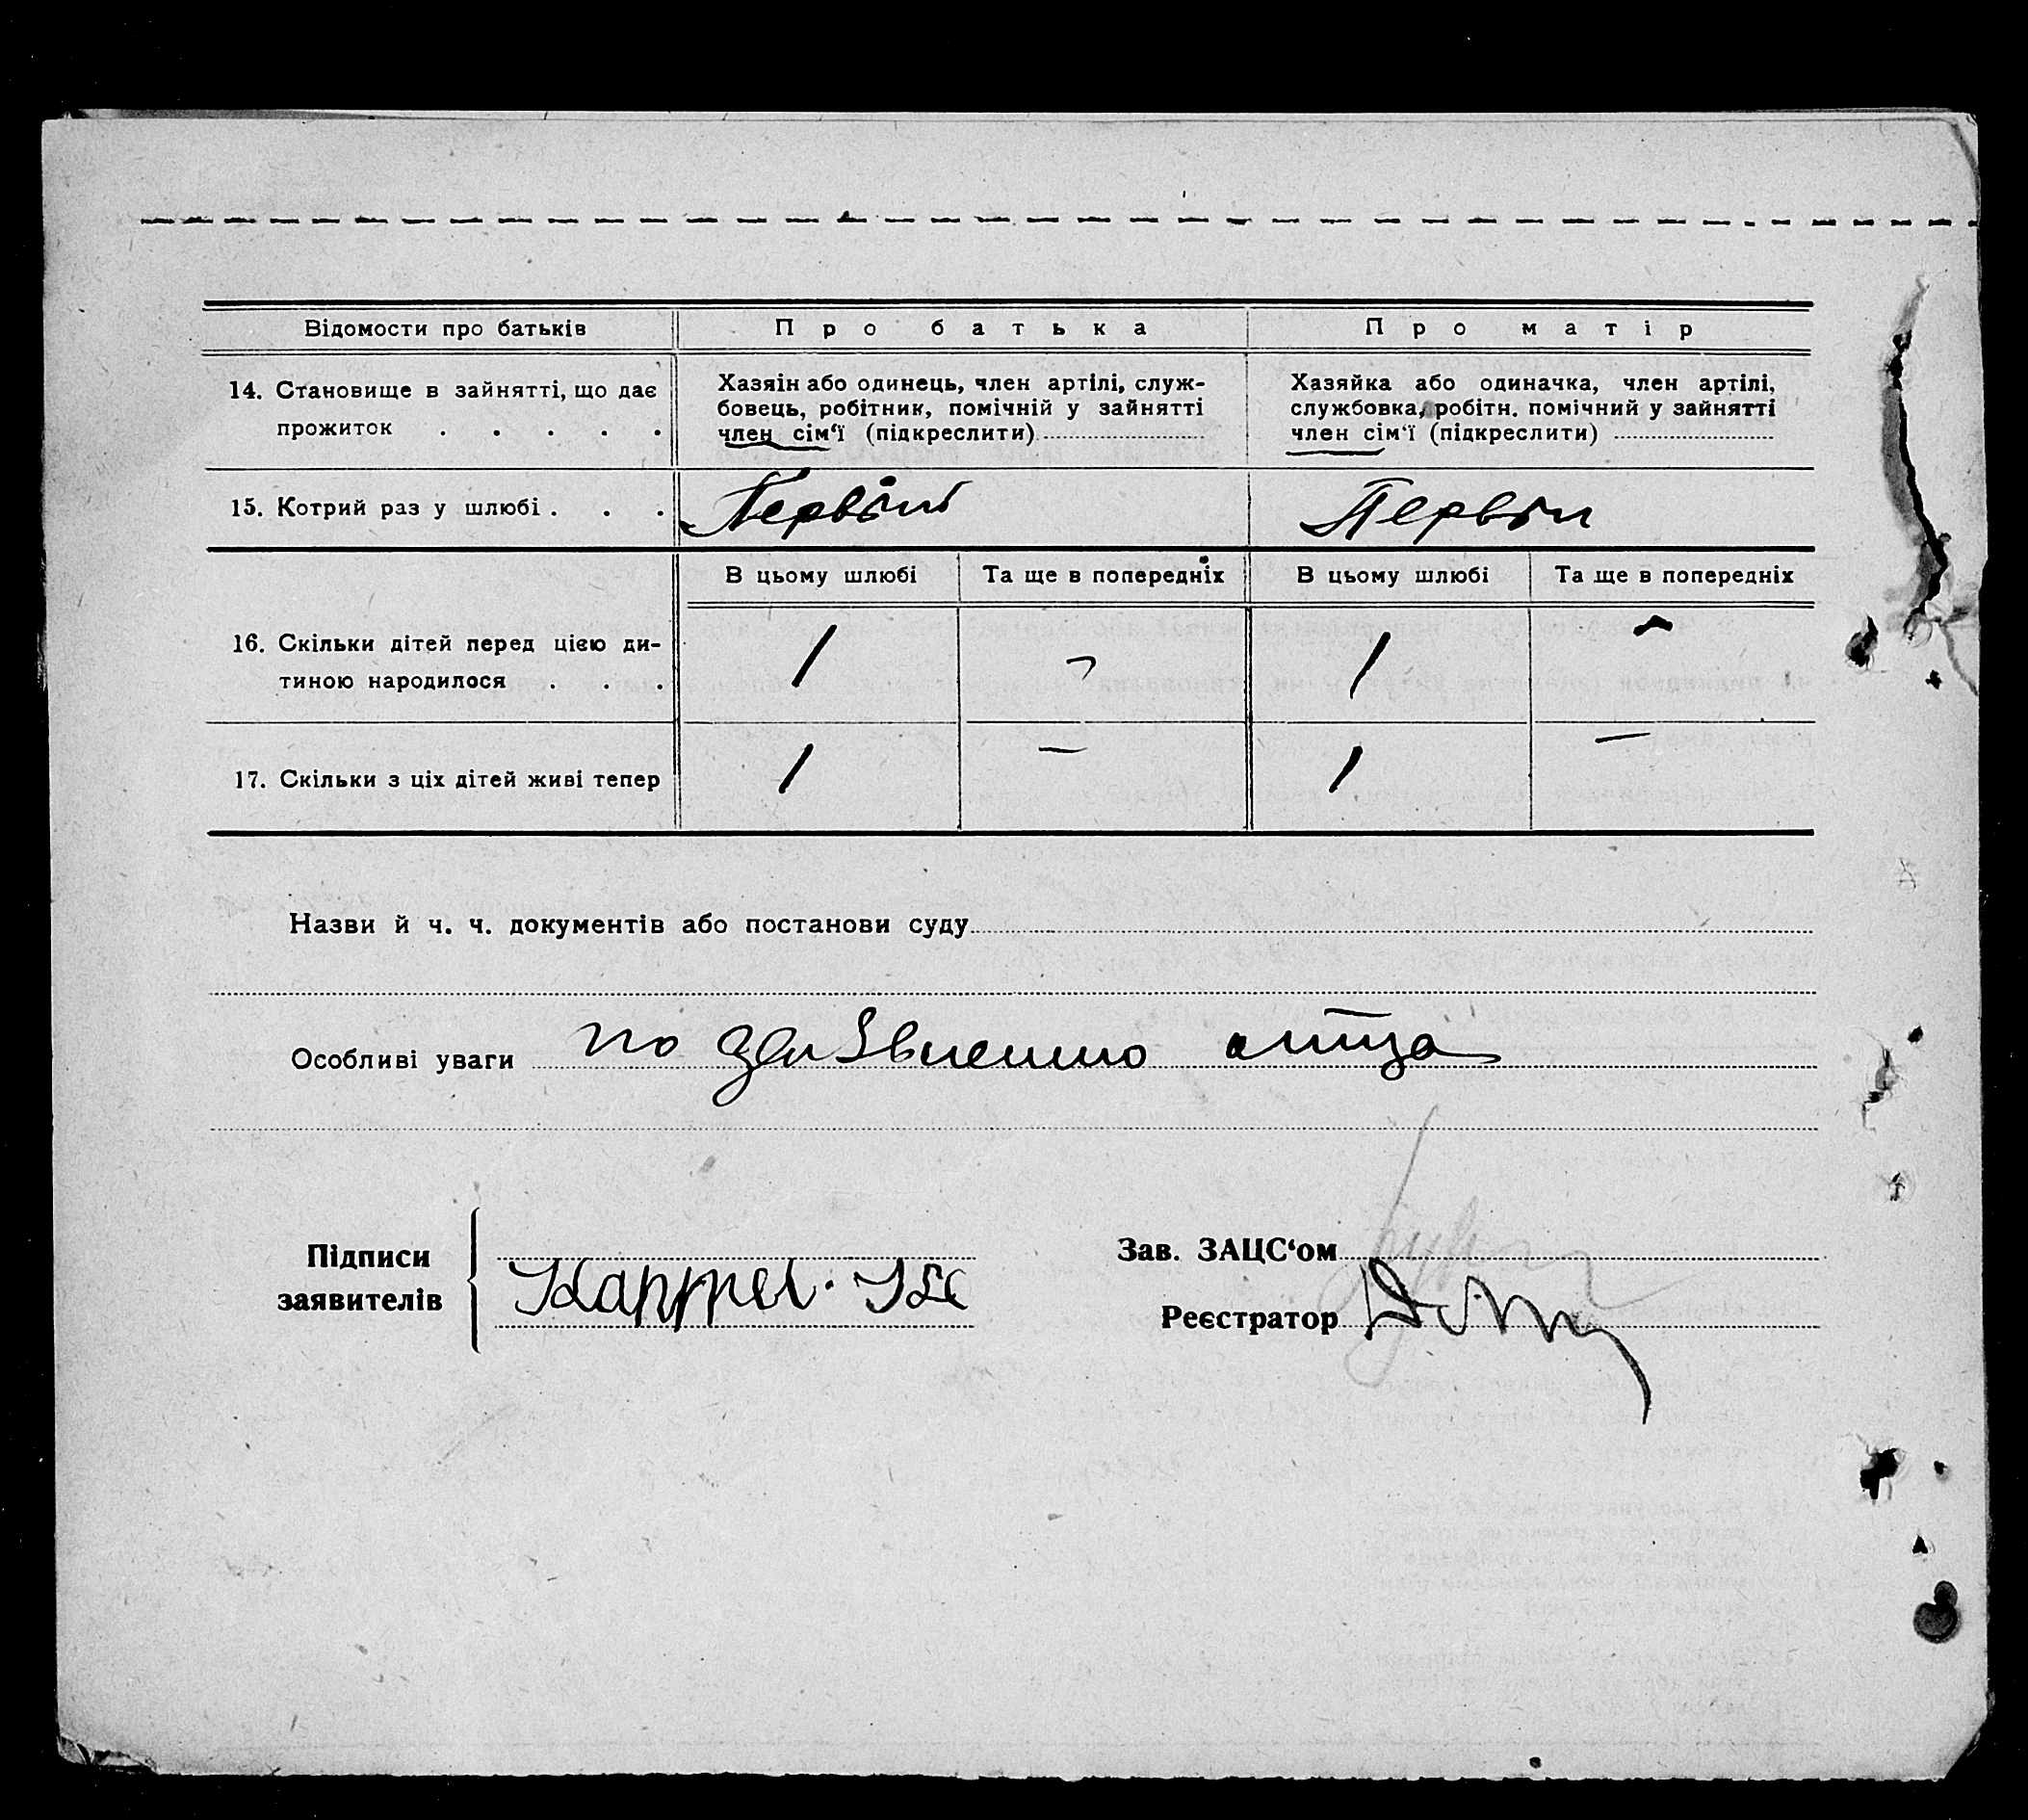 Відомости про батьків
Про батька
Про матір
14. Становище в зайнятті, що дає
прожиток . . . . .
Хазяін або одинець, член артілі, служ-
бовець, робітник, помічній у зайнятті
член сім‘ї (підкреслити)
Хазяйка або одиначка, член артілі,
службовка, робітн. помічний у зайнятті
член сім‘ї (підкреслити)
15. Котрий раз у шлюбі . . .
Первій
Первій
В цьому шлюбі
Та ще в попередніх
В цьому шлюбі
Та ще в попередніх
16. Скільки дітей перед цією ди-
тиною народилося . . .
1
-
1
-
17. Скільки з ціх дітей живі тепер
1
-
1
-
Назви й ч. ч. документів або постанови суду
Особливі уваги по отца
Підписи
заявителів
Зав. ЗАЦС‘ом
Реєстратор